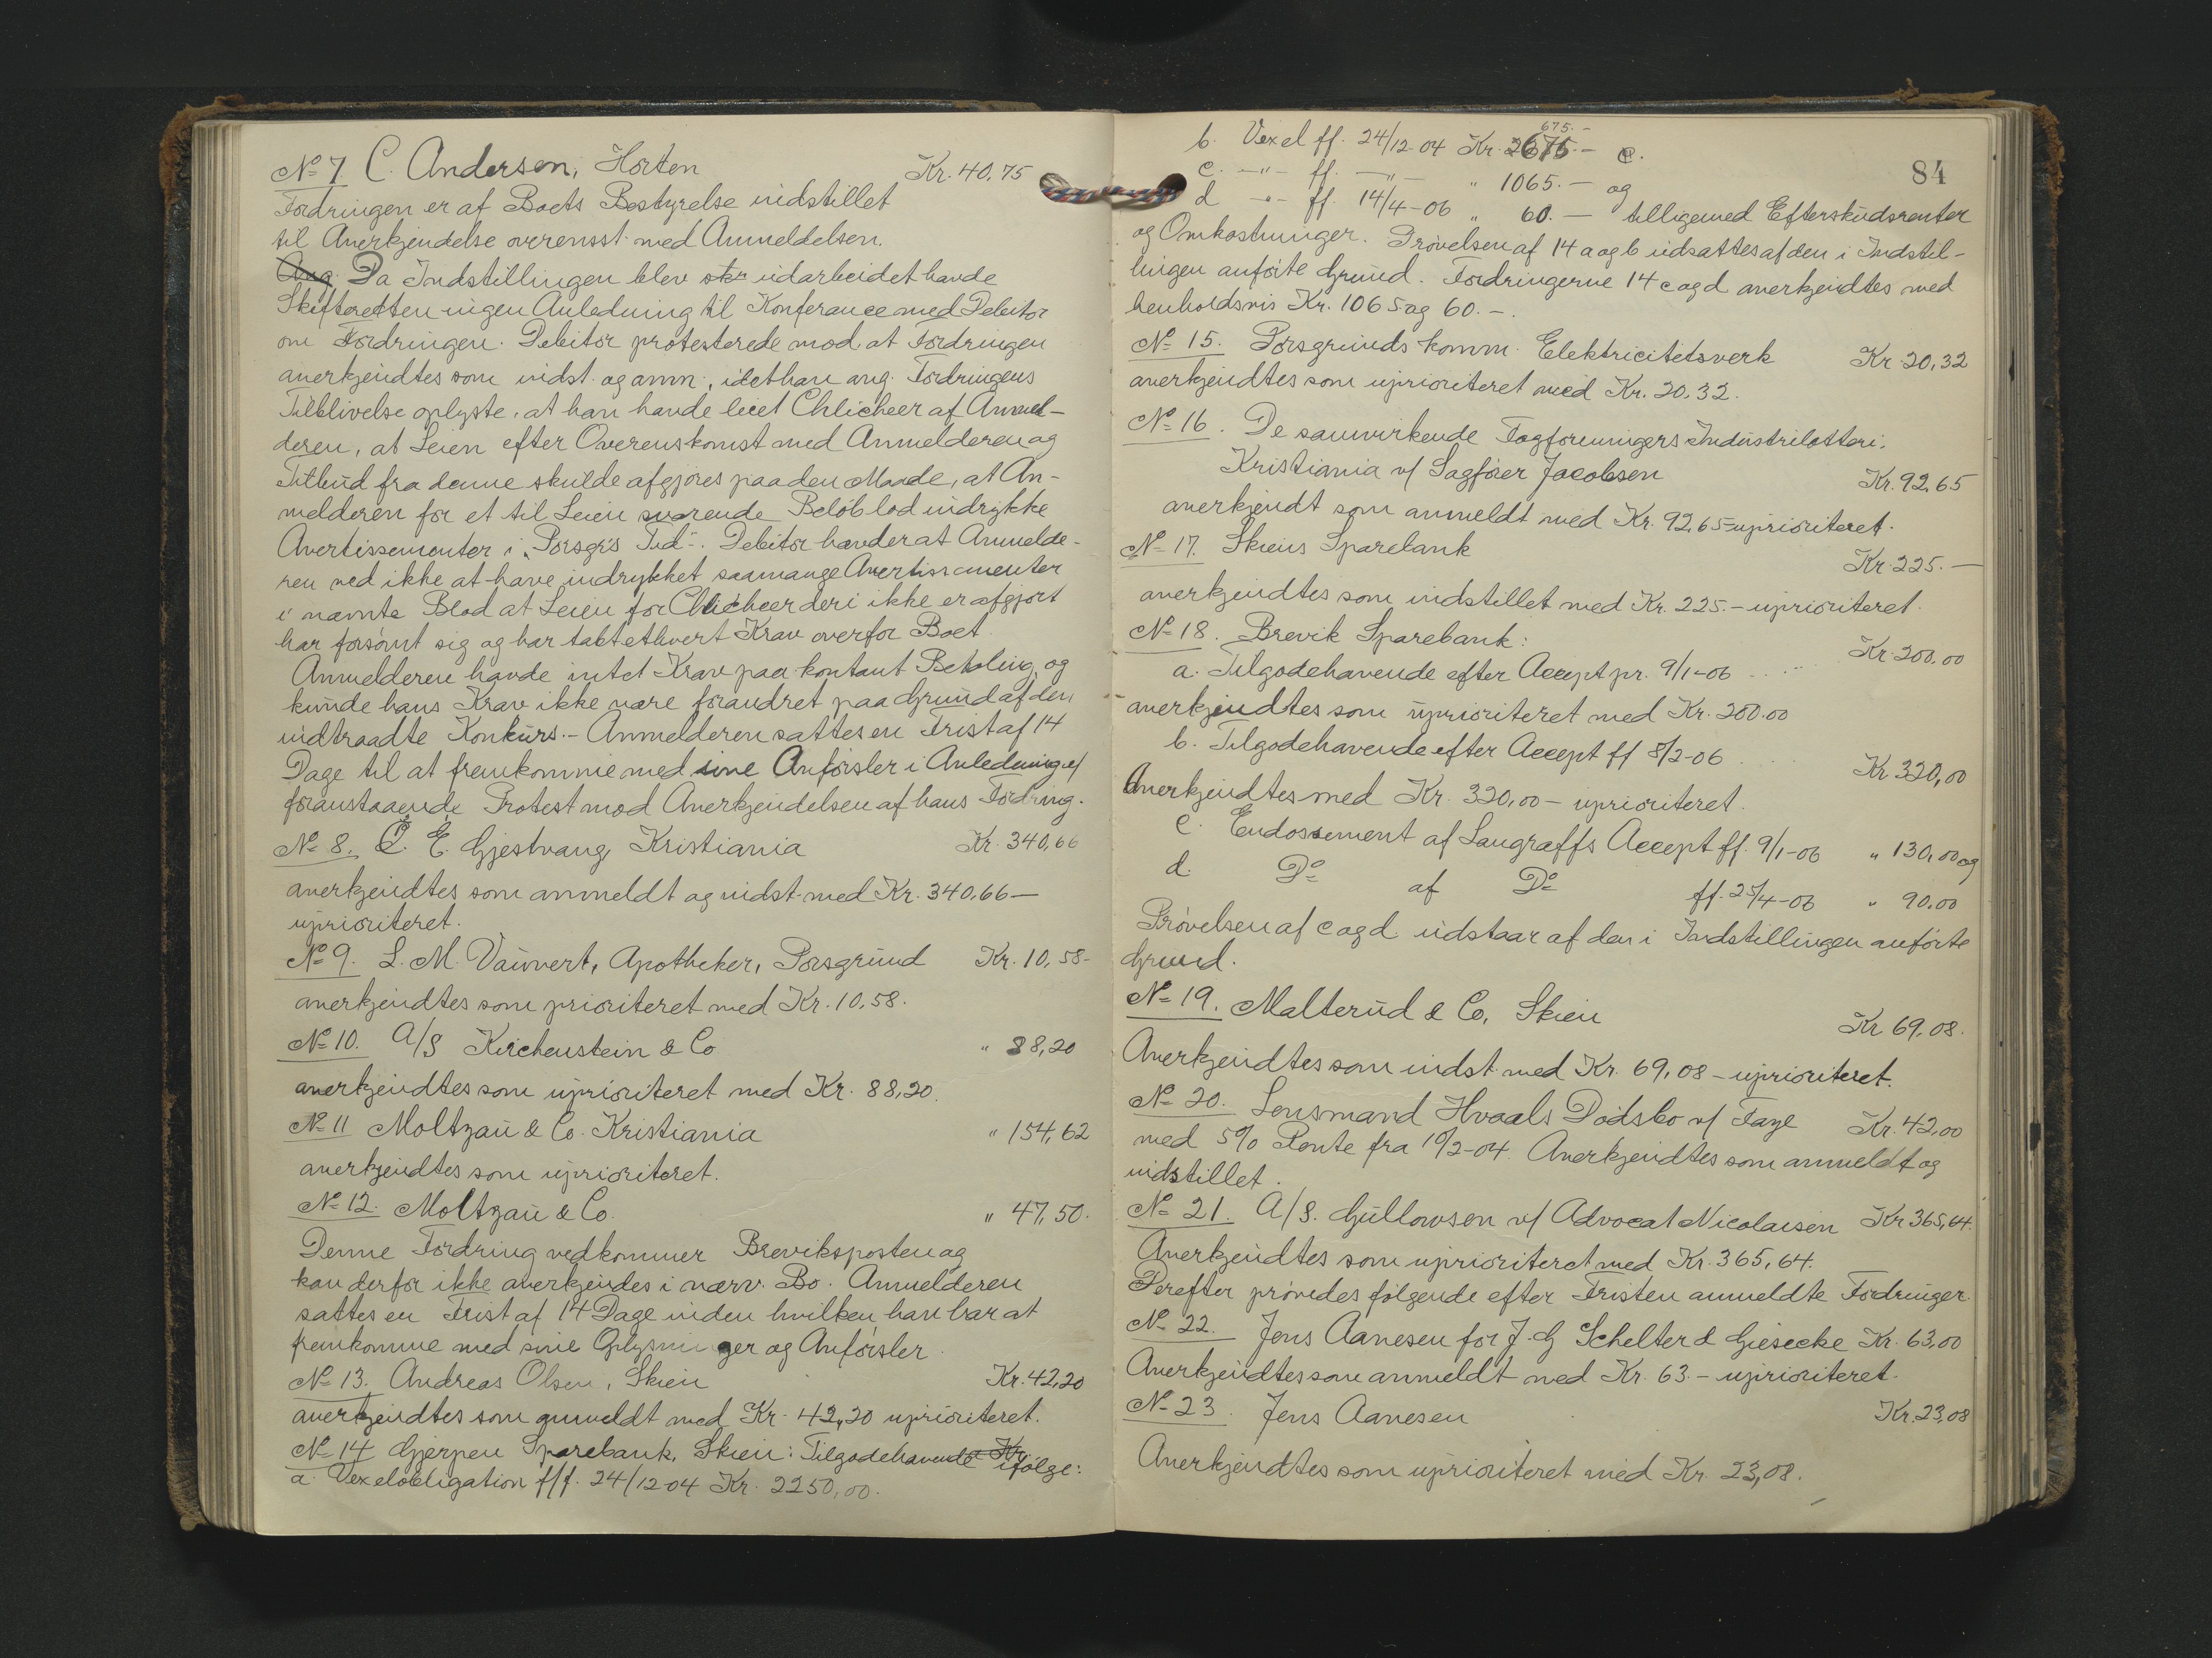 No 7 C. Andersen, Horten Kr. 40,75
Fordringen er af Boets Bestyrelse indstillet
til Anerkjendelse overensst. med Anmeldelsen.
Ang. Da Indstillingen blev udarbeidet havde
Skifteretten ingen Anledning til Konferance med Debitor
om Fordringen. Debitor protesterede mod at Fordringen
anerkjendtes som indst. og anm., idet han ang. Fordringens
Tilblivelse oplyste, at han havde leiet Chlicheer af Anmel-
deren, at Leien efter Overenskomst med Anmelderen og
Tilbud fra denne skulde afgjøres paa den Maade, at An-
melderen for et til Leien svarende Beløb lod indrykke
Avertissementer i "Porsgr's Tid". Debitor hævder at Anmelde-
ren ved ikke at have indrykket saamange Avertissementer
i nævnte Blad at Leien for Chlicheer deri ikke er afgjort
har forsømt sig og har tabt ethvert Krav overfor Boet.
Anmelderen havde intet Krav paa kontant Betaling og
kunde hans Krav ikke være forandret paa Grund af den
indtraadte Konkurs. - Anmelderen sattes en Frist af 14
Dage til at fremkomme med sine Anførsler i Anledning af
foranstaaende Protest mod Anerkjendelsen af hans Fordring.
No 8. O. E. Gjestvang, Kristiania Kr. 340,66
anerkjendtes som anmeldt og indst. med Kr. 340,66 -
uprioriteret.
No 9. L. M. Vauvert, Apotheker, Porsgrund Kr. 10,58-
anerkjendtes som prioriteret med Kr. 10,58.
No 10. A/S Kirchenstein & Co " 88,20
anerkjendtes som uprioriteret med Kr. 88,20.
No 11 Moltzau & Co. Kristiania " 154,62
anerkjendtes som uprioriteret.
No 12. Moltzau & Co. " 47,50.
Denne Fordring vedkommer Breviksposten og
kan derfor ikke anerkjendes i nærv. Bo. Anmelderen
sattes en Frist af 14 Dage inden hvilken han har at
fremkomme med sine Oplysninger og Anførsler.
No 13. Andreas Olsen, Skien Kr. 42,20
anerkjendtes som anmeldt med Kr. 42,20 uprioriteret.
No 14 Gjerpen Sparebank, Skien: Tilgodehavende Kr ifølge:
a. Vexelobligation f/f. 24/12 04 Kr. 2250,00.
84
675.-
b. Vexel ff. 24/12 04 Kr. 2675.- c.
c. -"- ff. -"- " 1065.- og
d -"- ff. 14/4-06 " 60.- tilligemed Efterskudsrenter
og Omkostninger. Prøvelsen af 14 a og b udsattes af den i Indstil-
lingen anførte Grund. Fordringerne 14 c og d anerkjendtes med
henholdsvis Kr. 1065 og 60.-.
No 15. Porsgrunds komm. Elektricitetsverk Kr. 20,32
anerkjendtes som uprioriteret med Kr. 20,32.
No 16. De samvirkende Fagforeningers Industrilotteri,
Kristiania v/ Sagfører Jacobsen Kr. 92,65
anerkjendt som anmeldt med Kr. 92,65 uprioriteret.
No 17. Skiens Sparebank Kr. 225.-
anerkjendtes som indstillet med Kr. 225.- uprioriteret.
No 18. Brevik Sparebank:
a. Tilgodehavende efter Accept pr. 9/1-06 .... Kr. 200,00
anerkjendtes som uprioriteret med Kr. 200.00
b. Tilgodehavende efter Accept ff 8/2-06 .... Kr 320,00
Anerkjendtes med Kr. 320,00 - uprioriteret.
c. Endossement af Langraffs Accept ff. 9/1-06 " 130,00 og
d. Do af Do ff. 25/4-06 " 90.00
Prøvelsen af c og d udstaar af den i Indstillingen anførte
Grund.
No 19. Malterud & Co, Skien Kr 69,08.
Anerkjendtes som indst. med Kr. 69,08 - uprioriteret.
No 20. Lensmand Hvaals Dødsbo v/ Faye Kr. 42,00
med 5% Rente fra 10/2-04. Anerkjendtes som anmeldt og
indstillet.
No 21. A/S. Gullowsen v/ Advocat Nicolaisen Kr 365,64.
Anerkjendtes som uprioriteret med Kr. 365,64.
Derefter prøvedes følgende efter Fristen anmeldte Fordringer.
No 22. Jens Aanesen for J. G Schelter & Giesecke Kr. 63,00
Anerkjendtes som anmeldt med Kr. 63.- uprioriteret.
No 23. Jens Aanesen Kr. 23,08
Anerkjendtes som uprioriteret med Kr. 23,08.